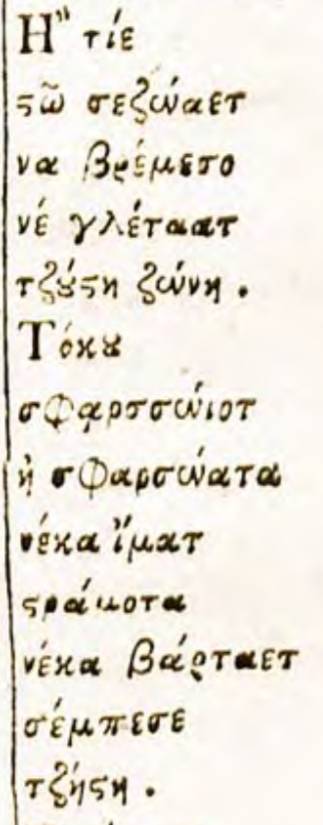 Η" τίε
ςῶ σεζώαετ
να βρέμετο
νέ γλέταατ
τζȣ́ςη ζώνη.
Τόκȣ
σφαρσσώιοτ
ἡ σφαρσώατα
νέκα ἴματ
ςράμοτα
νέκα βάρταετ
σέμπεσε
τζήςη.